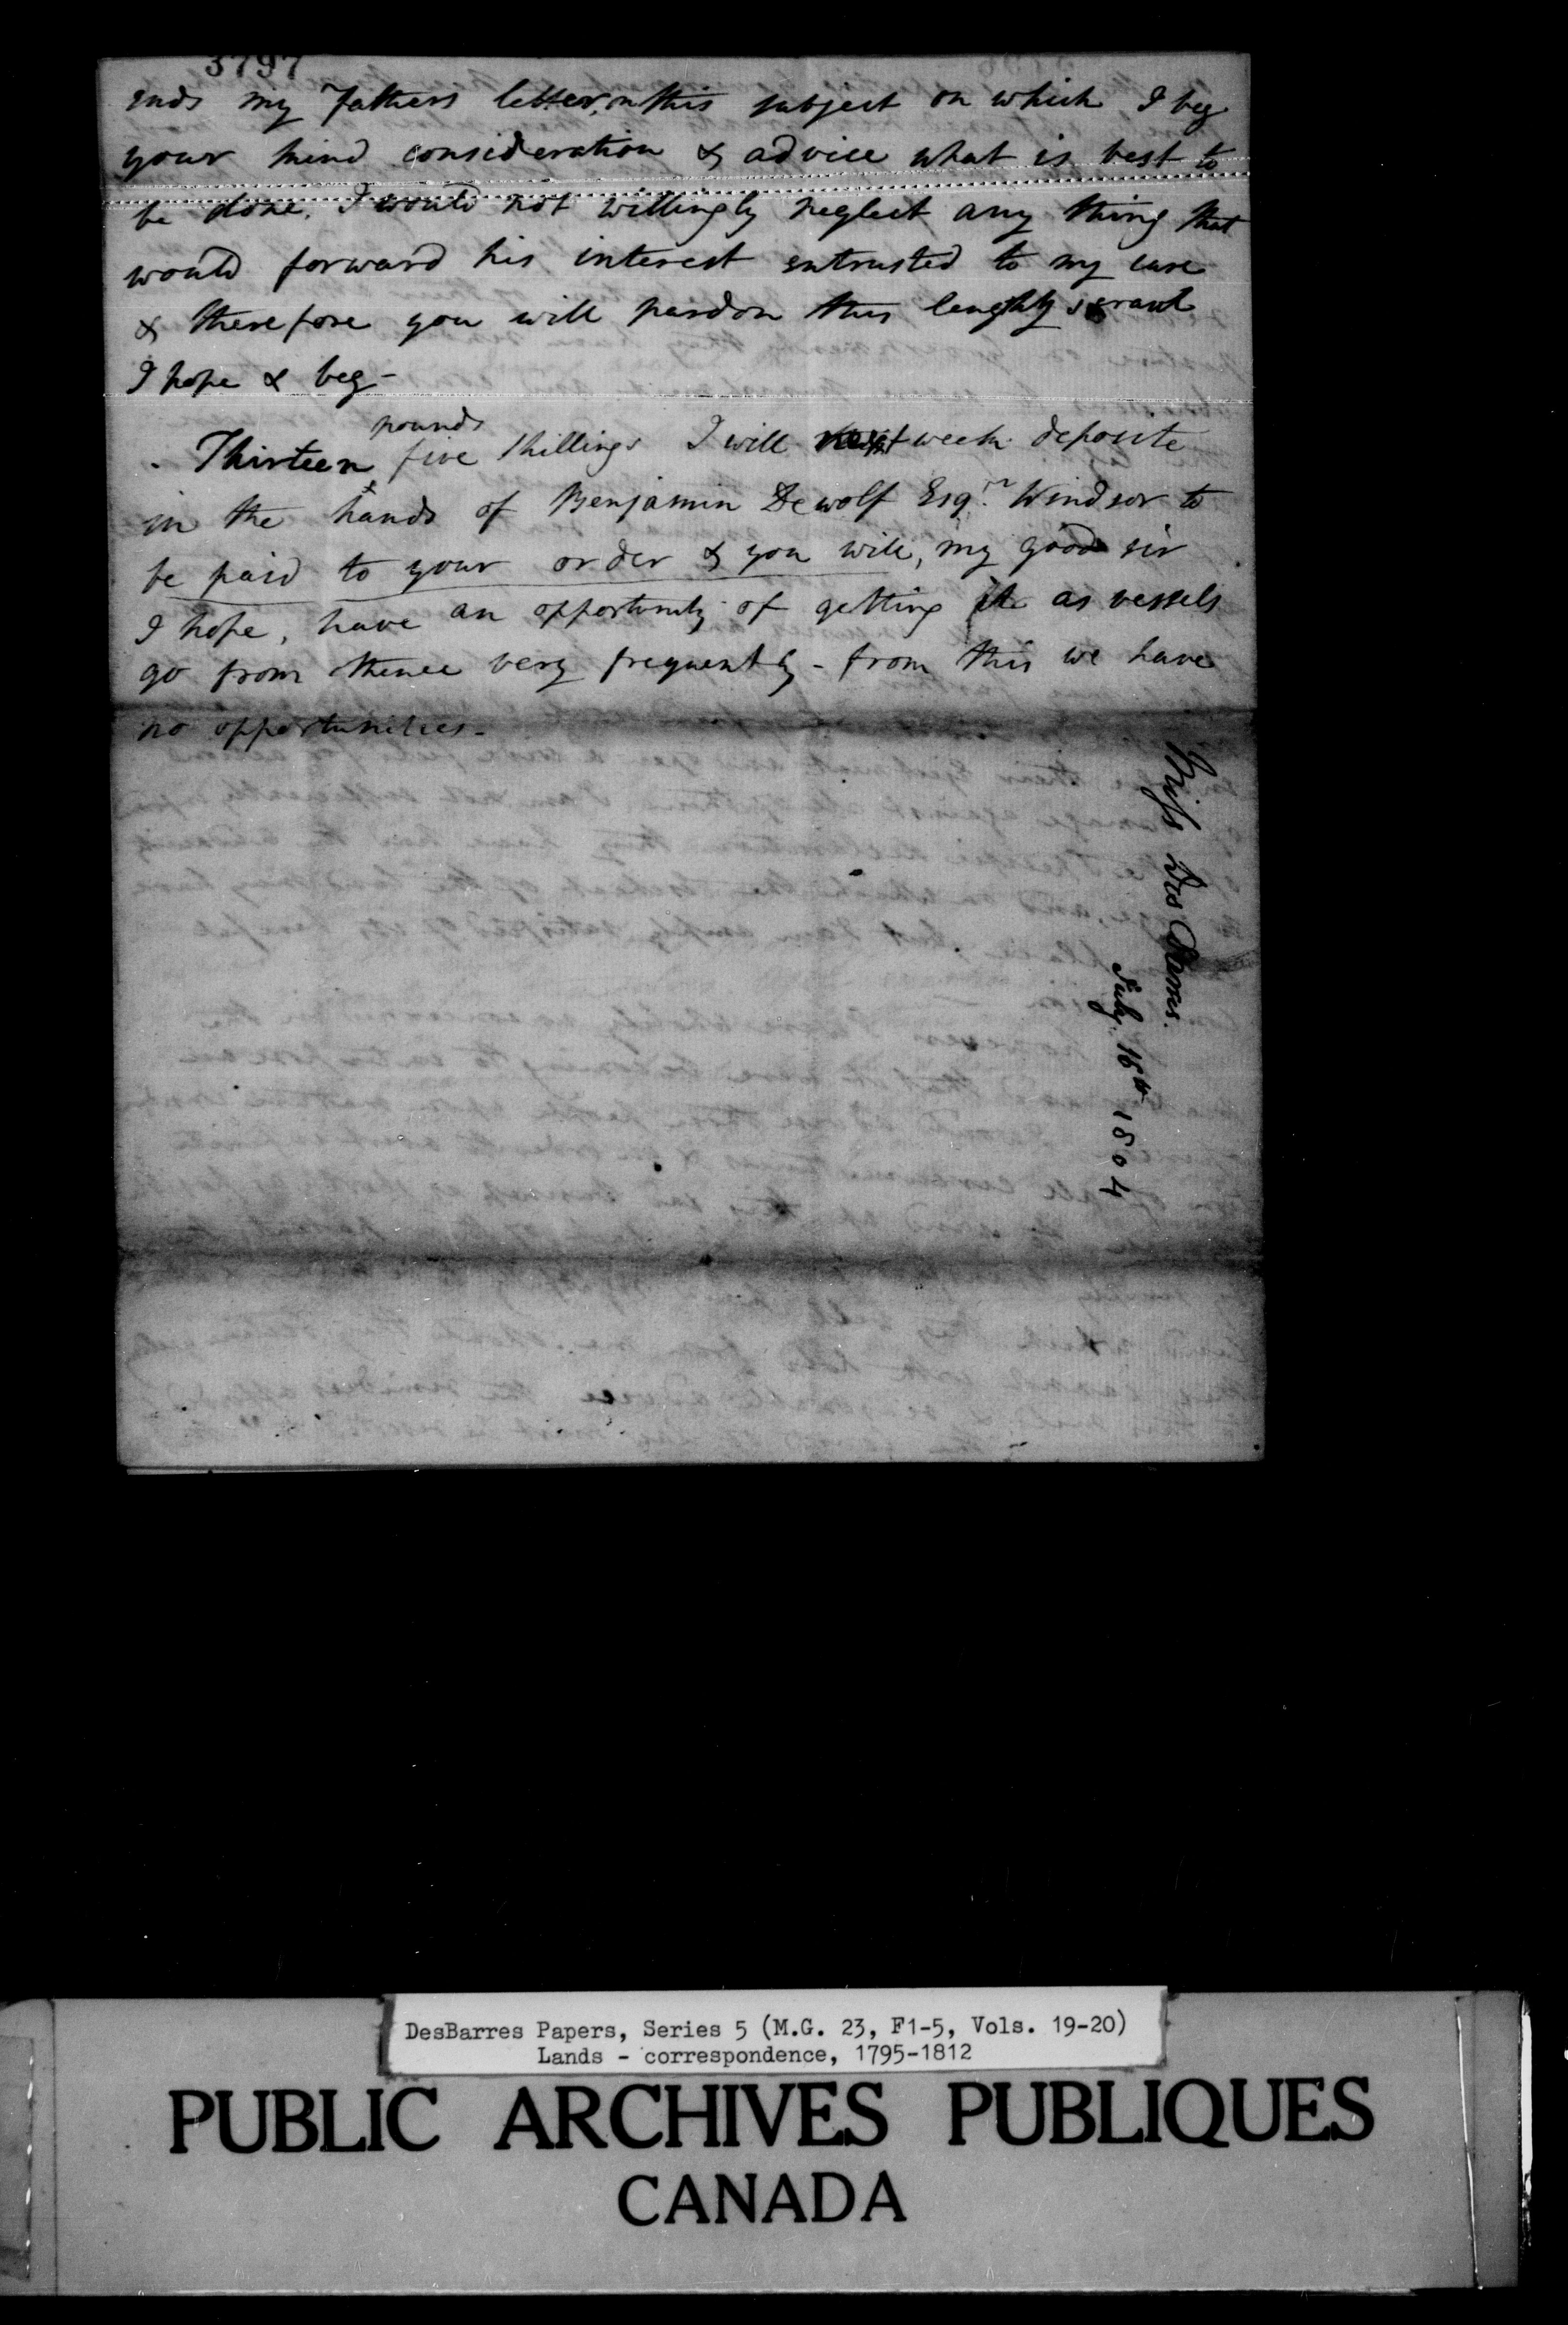 3797
ends my Fathers letter, on this subject on which I beg
your kind consideration & advice what is best to
be done. I would not willingly neglect any thing that
would forward his interest entrusted to my care
& therefore you will pardon this lenghty scrawl
I hope & beg -
pounds
Thirteen ^ five shillings I will next week deposite
in the hands of Benjamin Dewolf Esqr. Windsor to
be paid to your order & you will, my good sir
I hope, have an opportunity of getting it as vessels
go from thence very frequently - from this we have
no opportunities -
Miss Des Barres.
July 16th 1804
DesBarres Papers, Series 5 (M.G. 23, F1-5, Vols. 19-20)
Lands - correspondence, 1795-1812
PUBLIC ARCHIVES PUBLIQUES
CANADA